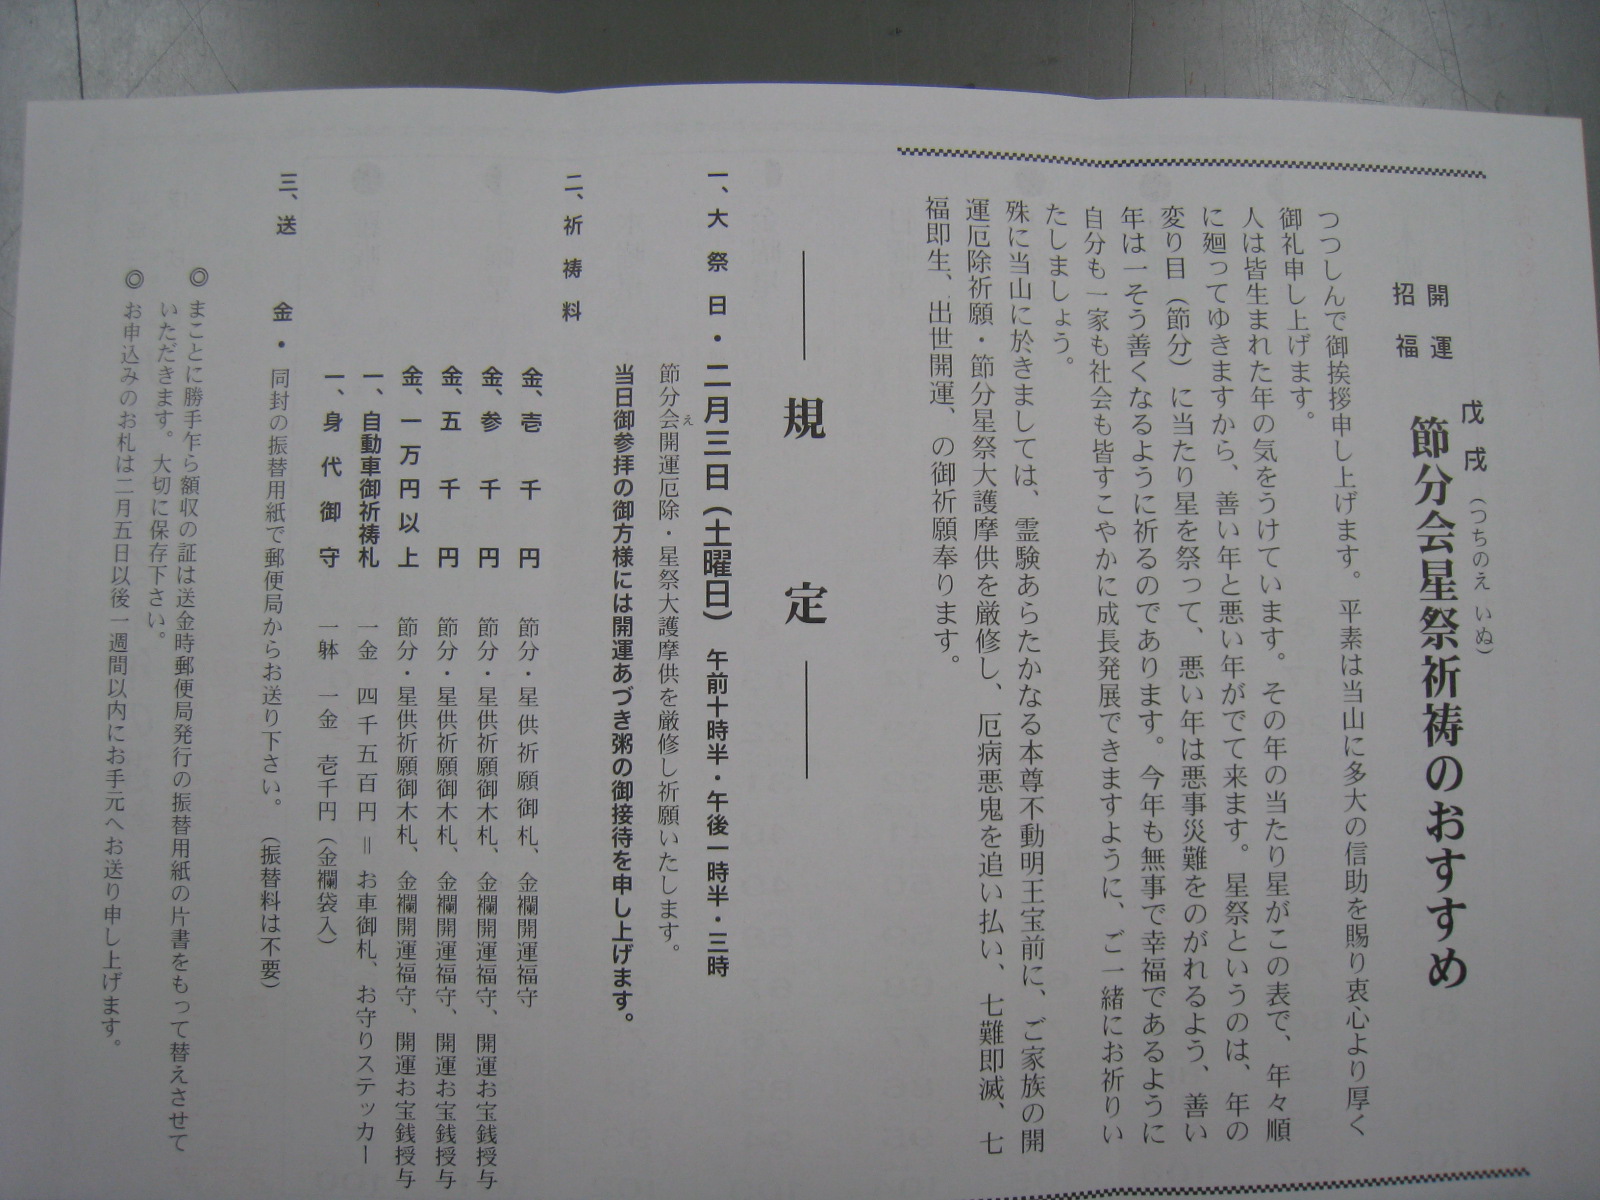 開運
招福
戊戌(つちのえ いぬ)
節分会星祭祈祷のおすすめ
つつしんで御挨拶申し上げます。平素は当山に多大の信助を賜り衷心より厚く
御礼申し上げます。
人は皆生まれた年の気をうけています。その年の当たり星がこの表で、年々順
に廻ってゆきますから、善い年と悪い年がでて来ます。星祭というのは、年の
変り目(節分)に当たり星を祭って、悪い年は悪事災難をのがれるよう、善い
年は一そう善くなるように祈るのであります。今年も無事で幸福であるように
自分も一家も社会も皆すこやかに成長発展できますように、ご一緒にお祈りい
たしましょう。
殊に当山に於きましては、霊験あらたかなる本尊不動明王宝前に、ご家族の開
運厄除祈願・節分星祭大護摩供を厳修し、厄病悪鬼を追い払い、七難即滅、七
福即生、出世開運、の御祈願奉ります。
規定
一、大祭日・二月三日(土曜日) 午前十時半・午後一時半・三時
節分会開運厄除・星祭大護摩供を厳修し祈願いたします。
え
当日御参拝の御方様には開運あづき粥の御接待を申し上げます。
二、祈祷料
金、壱千円 節分・星供祈願御札、金襴開運福守
金、参千円 節分・星供祈願御木札、金襴開運福守、開運お宝銭授与
金、五千円 節分・星供祈願御木札、金襴開運福守、開運お宝銭授与
金、一万円以上 節分・星供祈願御木札、金襴開運福守、開運お宝銭授与
一、自動車御祈祷札 一金 四千五百円＝お車御札、お守りステッカー
一、身代御守 一躰 一金 壱千円(金襴袋入)
三、送金・同封の振替用紙で郵便局からお送り下さい。(振替料は不要)
◎まことに勝手乍ら額収の証は送金時郵便局発行の振替用紙の片書をもって替えさせて
いただきます。大切に保存下さい。
◎お申込みのお札は二月五日以後一週間以内にお手元へお送り申し上げます。